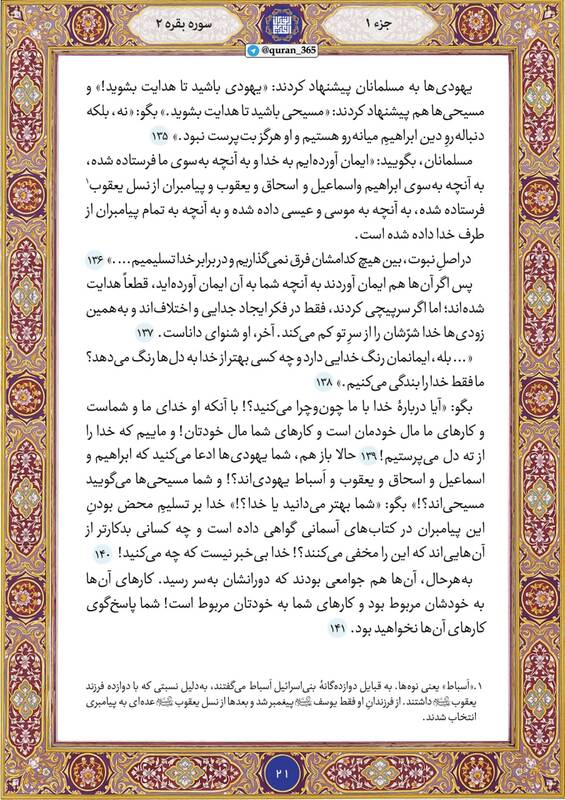 جزء ۱
سوره بقره ۲
@quran_365
یهودی‌ها به مسلمانان پیشنهاد کردند: «یهودی باشید تا هدایت بشوید!» و
مسیحی‌ها هم پیشنهاد کردند: «مسیحی باشید تا هدایت بشوید.» بگو: «نه، بلکه
دنباله‌روِ دین ابراهیمِ میانه‌رو هستیم و او هرگز بت‌پرست نبود.» ۱۳۵
مسلمانان، بگویید: «ایمان آورده‌ایم به خدا و به آنچه به‌سوی ما فرستاده شده،
به آنچه به‌سوی ابراهیم واسماعیل و اسحاق و یعقوب و پیامبران از نسل یعقوب۱
فرستاده شده، به آنچه به موسی و عیسی داده شده و به آنچه به تمام پیامبران از
طرف خدا داده شده است.
دراصلِ نبوت، بین هیچ کدامشان فرق نمی‌گذاریم و در برابر خدا تسلیمیم....» ۱۳۶
پس اگر آن‌ها هم ایمان آوردند به آنچه شما به آن ایمان آورده‌اید، قطعاً هدایت
شده‌اند؛ اما اگر سرپیچی کردند، فقط در فکر ایجاد جدایی و اختلاف‌اند و به‌همین
زودی‌ها خدا شرّشان را از سرِ تو کم می‌کند. آخر، او شنوای داناست. ۱۳۷
«... بله، ایمانمان رنگ خدایی دارد و چه کسی بهتر از خدا به دل‌ها رنگ می‌دهد؟
ما فقط خدا را بندگی می‌کنیم.» ۱۳۸
بگو: «آیا دربارهٔ خدا با ما چون‌وچرا می‌کنید؟! با آنکه او خدای ما و شماست
و کارهای ما مال خودمان است و کارهای شما مال خودتان! و ماییم که خدا را
از ته دل می‌پرستیم! ۱۳۹ حالا باز هم، شما یهودی‌ها ادعا می‌کنید که ابراهیم و
اسماعیل و اسحاق و یعقوب و اَسباط یهودی‌اند؟! و شما مسیحی‌ها می‌گویید
مسیحی‌اند؟!» بگو: «شما بهتر می‌دانید یا خدا؟!» خدا بر تسلیمِ محض بودنِ
این پیامبران در کتاب‌های آسمانی گواهی داده است و چه کسانی بدکارتر از
آن‌هایی‌اند که این را مخفی می‌کنند؟! خدا بی‌خبر نیست که چه می‌کنید! ۱۴۰
به‌هرحال، آن‌ها هم جوامعی بودند که دورانشان به‌سر رسید. کارهای آن‌ها
به خودشان مربوط بود و کارهای شما به خودتان مربوط است! شما پاسخ‌گوی
کارهای آن‌ها نخواهید بود. ۱۴۱
۱. «اَسباط» یعنی نوه‌ها. به قبایل دوازده‌گانهٔ بنی‌اسرائیل اَسباط می‌گفتند، به‌دلیل نسبتی که با دوازده فرزند
یعقوب داشتند. از فرزندانِ او فقط یوسف پیغمبر شد و بعدها از نسل یعقوب عده‌ای به پیامبری
انتخاب شدند.
۲۱